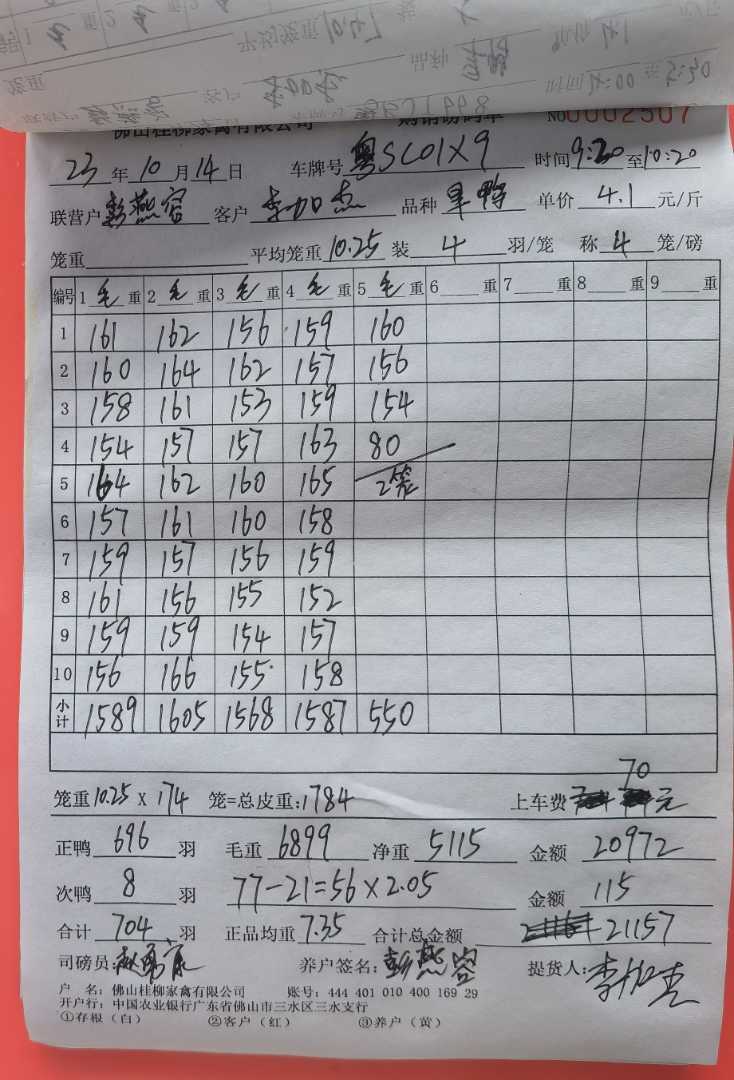 佛山桂柳家禽有限公司 购销磅码单 No 0002507
23 年 10 月 14 日 车牌号 粤SC01X9 时间 9:20 至 10:20
联营户 彭燕容 客户 李加杰 品种 旱鸭 单价 4.1 元/斤
笼重 平均笼重 10.25 装 4 羽/笼 称 4 笼/磅
编号 1 毛 重 2 毛 重 3 毛 重 4 毛 重 5 毛 重 6 重 7 重 8 重 9 重
1 161 162 156 159 160
2 160 164 162 157 156
3 158 161 153 159 154
4 154 157 157 163 80
5 164 162 160 165 2笼
6 157 161 160 158
7 159 157 156 159
8 161 156 155 152
9 159 159 154 157
10 156 166 155 158
小计 1589 1605 1568 1587 550
70
笼重 10.25 X 174 笼=总皮重: 1784 上车费 元
正鸭 696 羽 毛重 6899 净重 5115 金额 20972
次鸭 8 羽 77-21=56×2.05 金额 115
合计 704 羽 正品均重 7.35 合计总金额 21157
司磅员: 养户签名: 彭燕容 提货人: 李加杰
户 名: 佛山桂柳家禽有限公司 账号: 444 401 010 400 169 29
开户行: 中国农业银行广东省佛山市三水区三水支行
①存根（白） ②客户（红） ③养户（黄）